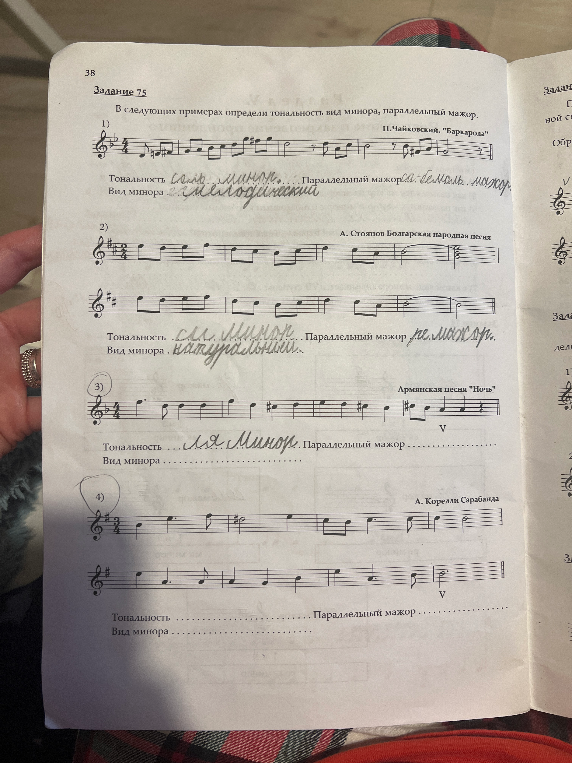 38
Задание 75
В следующих примерах определи тональность вид минора, параллельный мажор.
1)
П.Чайковский. "Баркарола"
Тональность соль минор. Параллельный мажор си-бемоль мажор.
Вид минора мелодический
2)
А. Стоянов Болгарская народная песня
Тональность си минор. Параллельный мажор ре мажор.
Вид минора натуральный.
3)
Армянская песня "Ночь"
V
Тональность ля Минор. Параллельный мажор
Вид минора
4)
А. Корелли Сарабанда
V
Тональность Параллельный мажор
Вид минора